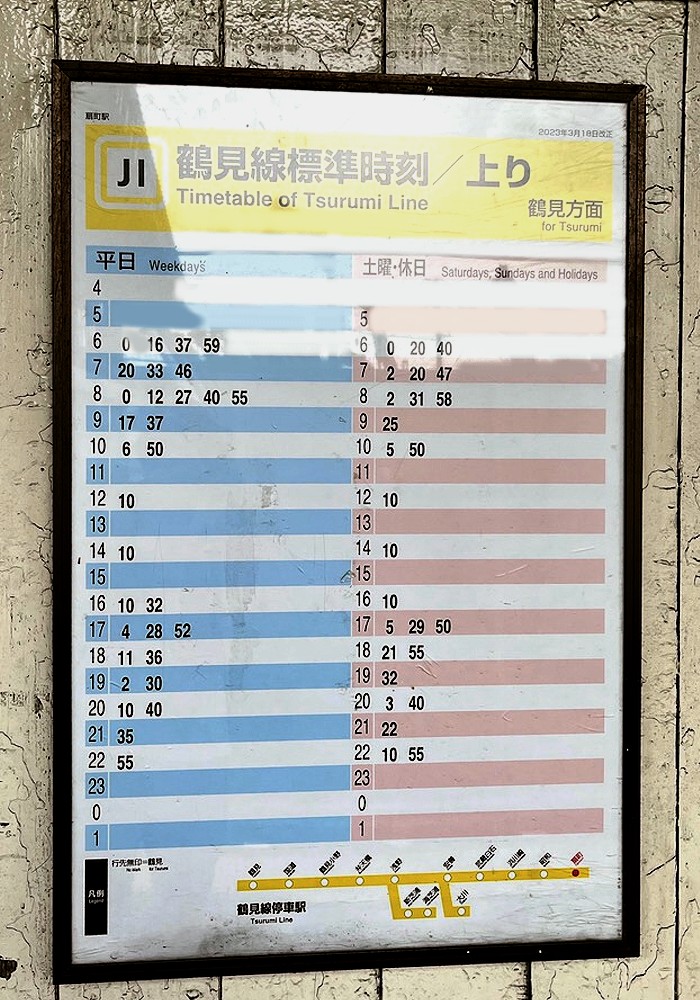 扇町駅
2023年3月18日改正
JI 鶴見線標準時刻／上り
Timetable of Tsurumi Line
鶴見方面
for Tsurumi
平日 Weekdays 土曜・休日 Saturdays, Sundays and Holidays
4
5 5
6 0 16 37 59 6 0 20 40
7 20 33 46 7 2 20 47
8 0 12 27 40 55 8 2 31 58
9 17 37 9 25
10 6 50 10 5 50
11 11
12 10 12 10
13 13
14 10 14 10
15 15
16 10 32 16 10
17 4 28 52 17 5 29 50
18 11 36 18 21 55
19 2 30 19 32
20 10 40 20 3 40
21 35 21 22
22 55 22 10 55
23 23
0 0
1 1
凡例
Legend
行先無印＝鶴見
No Mark for Tsurumi
鶴見 国道 鶴見小野 弁天橋 浅野 安善 武蔵白石 浜川崎 昭和 扇町
新芝浦 海芝浦 大川
鶴見線停車駅
Tsurumi Line